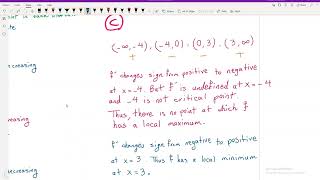 (c)
(-∞,-4), (-4,0), (0,3), (3,∞)
+ - - +
f' changes sign from positive to negative
at x=-4. But f is undefined at x=-4
and -4 is not critical point.
Thus, there is no point at which f
has a local maximum.
creasing
f' changes sign from negative to positive
at x=3. Thus f has a local minimum
at x=3.
creasing